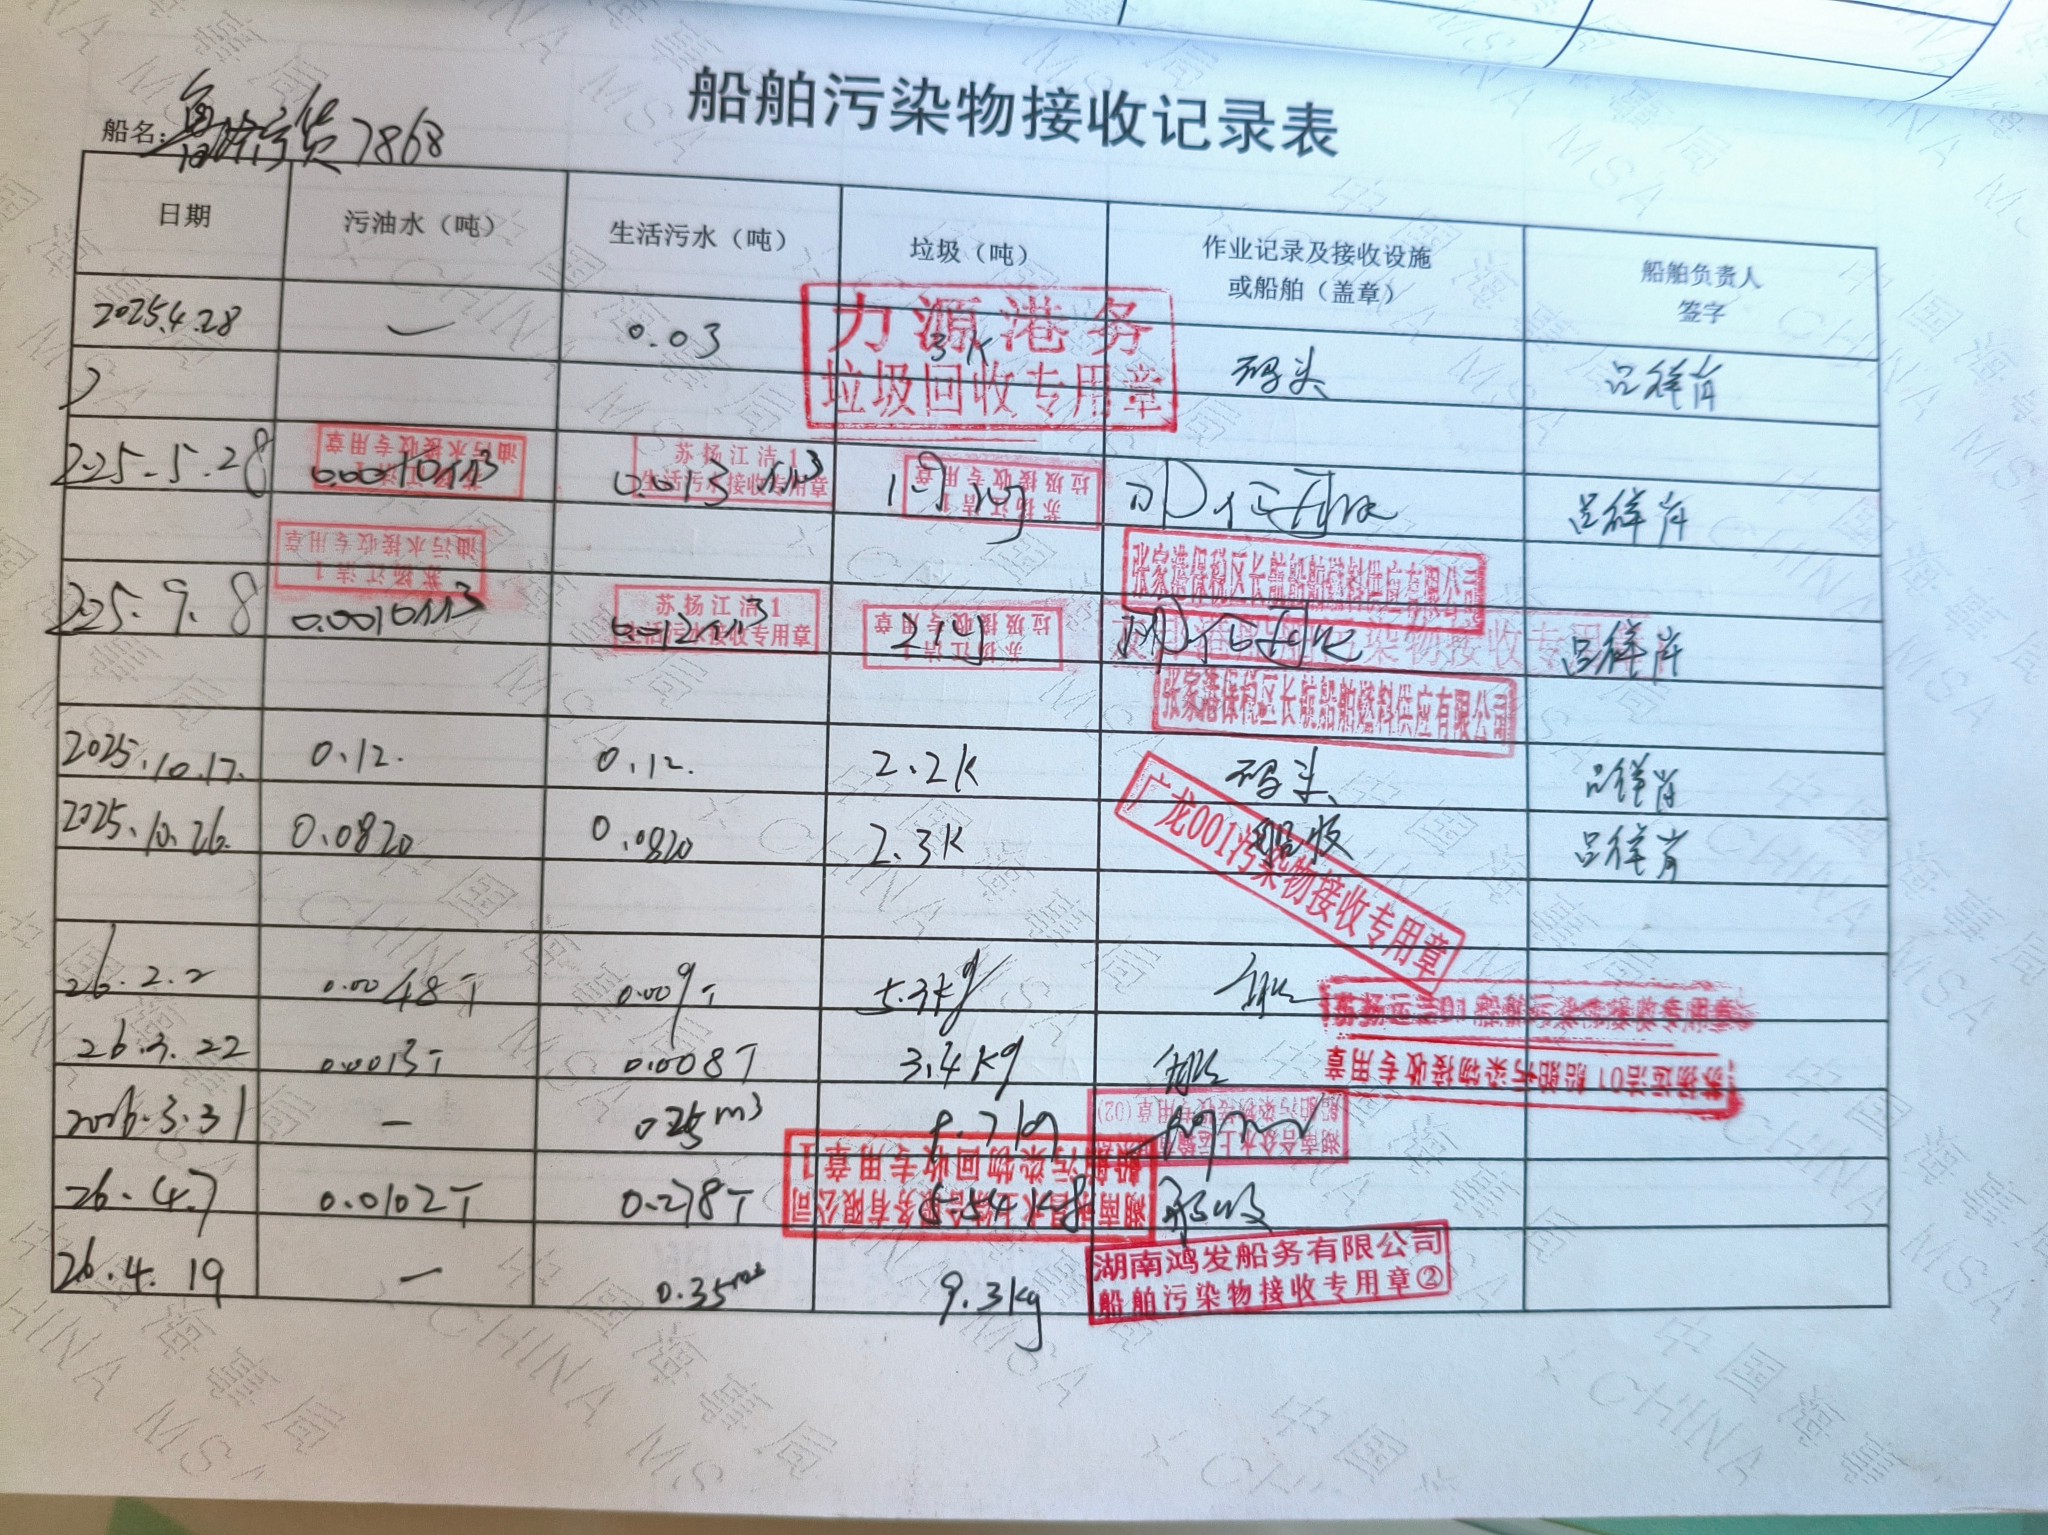 船舶污染物接收记录表
船名: 鲁济宁货7868
日期 污油水（吨） 生活污水（吨） 垃圾（吨） 作业记录及接收设施或船舶（盖章） 船舶负责人签字
2025.4.28 — 0.03 3K 码头 吕祥肖
力源港务
垃圾回收专用章
2025.5.28 0.0010m3 0.013m3
油污水接收专用章
苏扬江洁1
苏扬江洁1
生活污水接收专用章
垃圾接收专用章
苏扬江洁1
张家港保税区长航船舶燃料供应有限公司
225.9.8 0.0010m3 0.012m3
油污水接收专用章
苏扬江洁1
苏扬江洁1
生活污水接收专用章
垃圾接收专用章
苏扬江洁1
张家港保税区长航船舶燃料供应有限公司
2025.10.17. 0.12. 0.12. 2.2K 码头
2025.10.26. 0.0820 0.0820 2.3K 船收
广龙001污染物接收专用章
26.2.2 0.0048T 0.009T 5.3kg
苏扬运洁01船舶污染物接收专用章
26.3.22 0.0013T 0.008T 3.4kg
苏扬运洁01船舶污染物接收专用章
2026.3.31 — 0.25m3
26.4.7 0.0102T 0.278T 5.54kg
26.4.19 — 0.35m3 9.3kg
湖南鸿发船务有限公司
船舶污染物接收专用章②
中国海事局
CHINA MSA